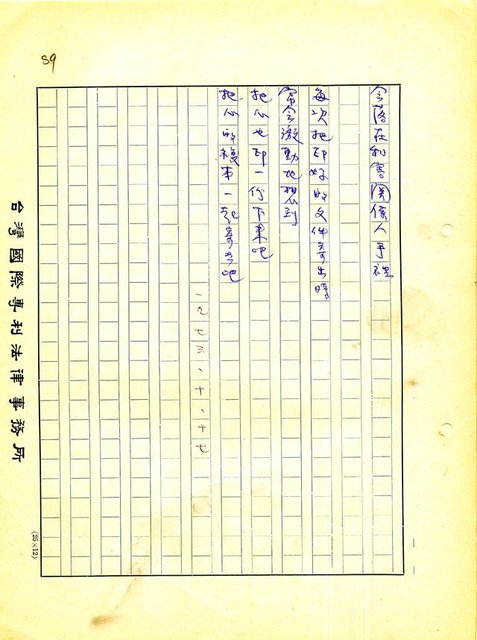 59
會落在利害關係人手裡
每次把印好的文件寄出時
常會激動地想到
把心也印一份下來吧
把心的複本一起寄去吧
一九七三、十、十七
台灣國際專利法律事務所
(25×12)